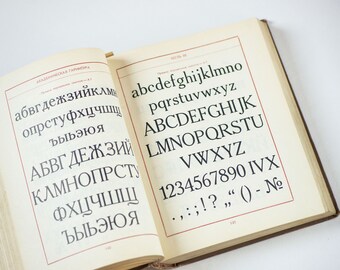 абвгдежзийклм
опрстуфхцчшщ
ъыьэюя
АБВГДЕЖЗИЙ
КЛМНОПРСТУ
ФХЦЧШЩ
ЪЫЬЭЮЯ
abcdefghijklmno
pqrstuvwxyz
ABCDEFGHIJK
LMNOPQRSTU
VWXYZ
1234567890 IVX
.,:;!? „“ () - №